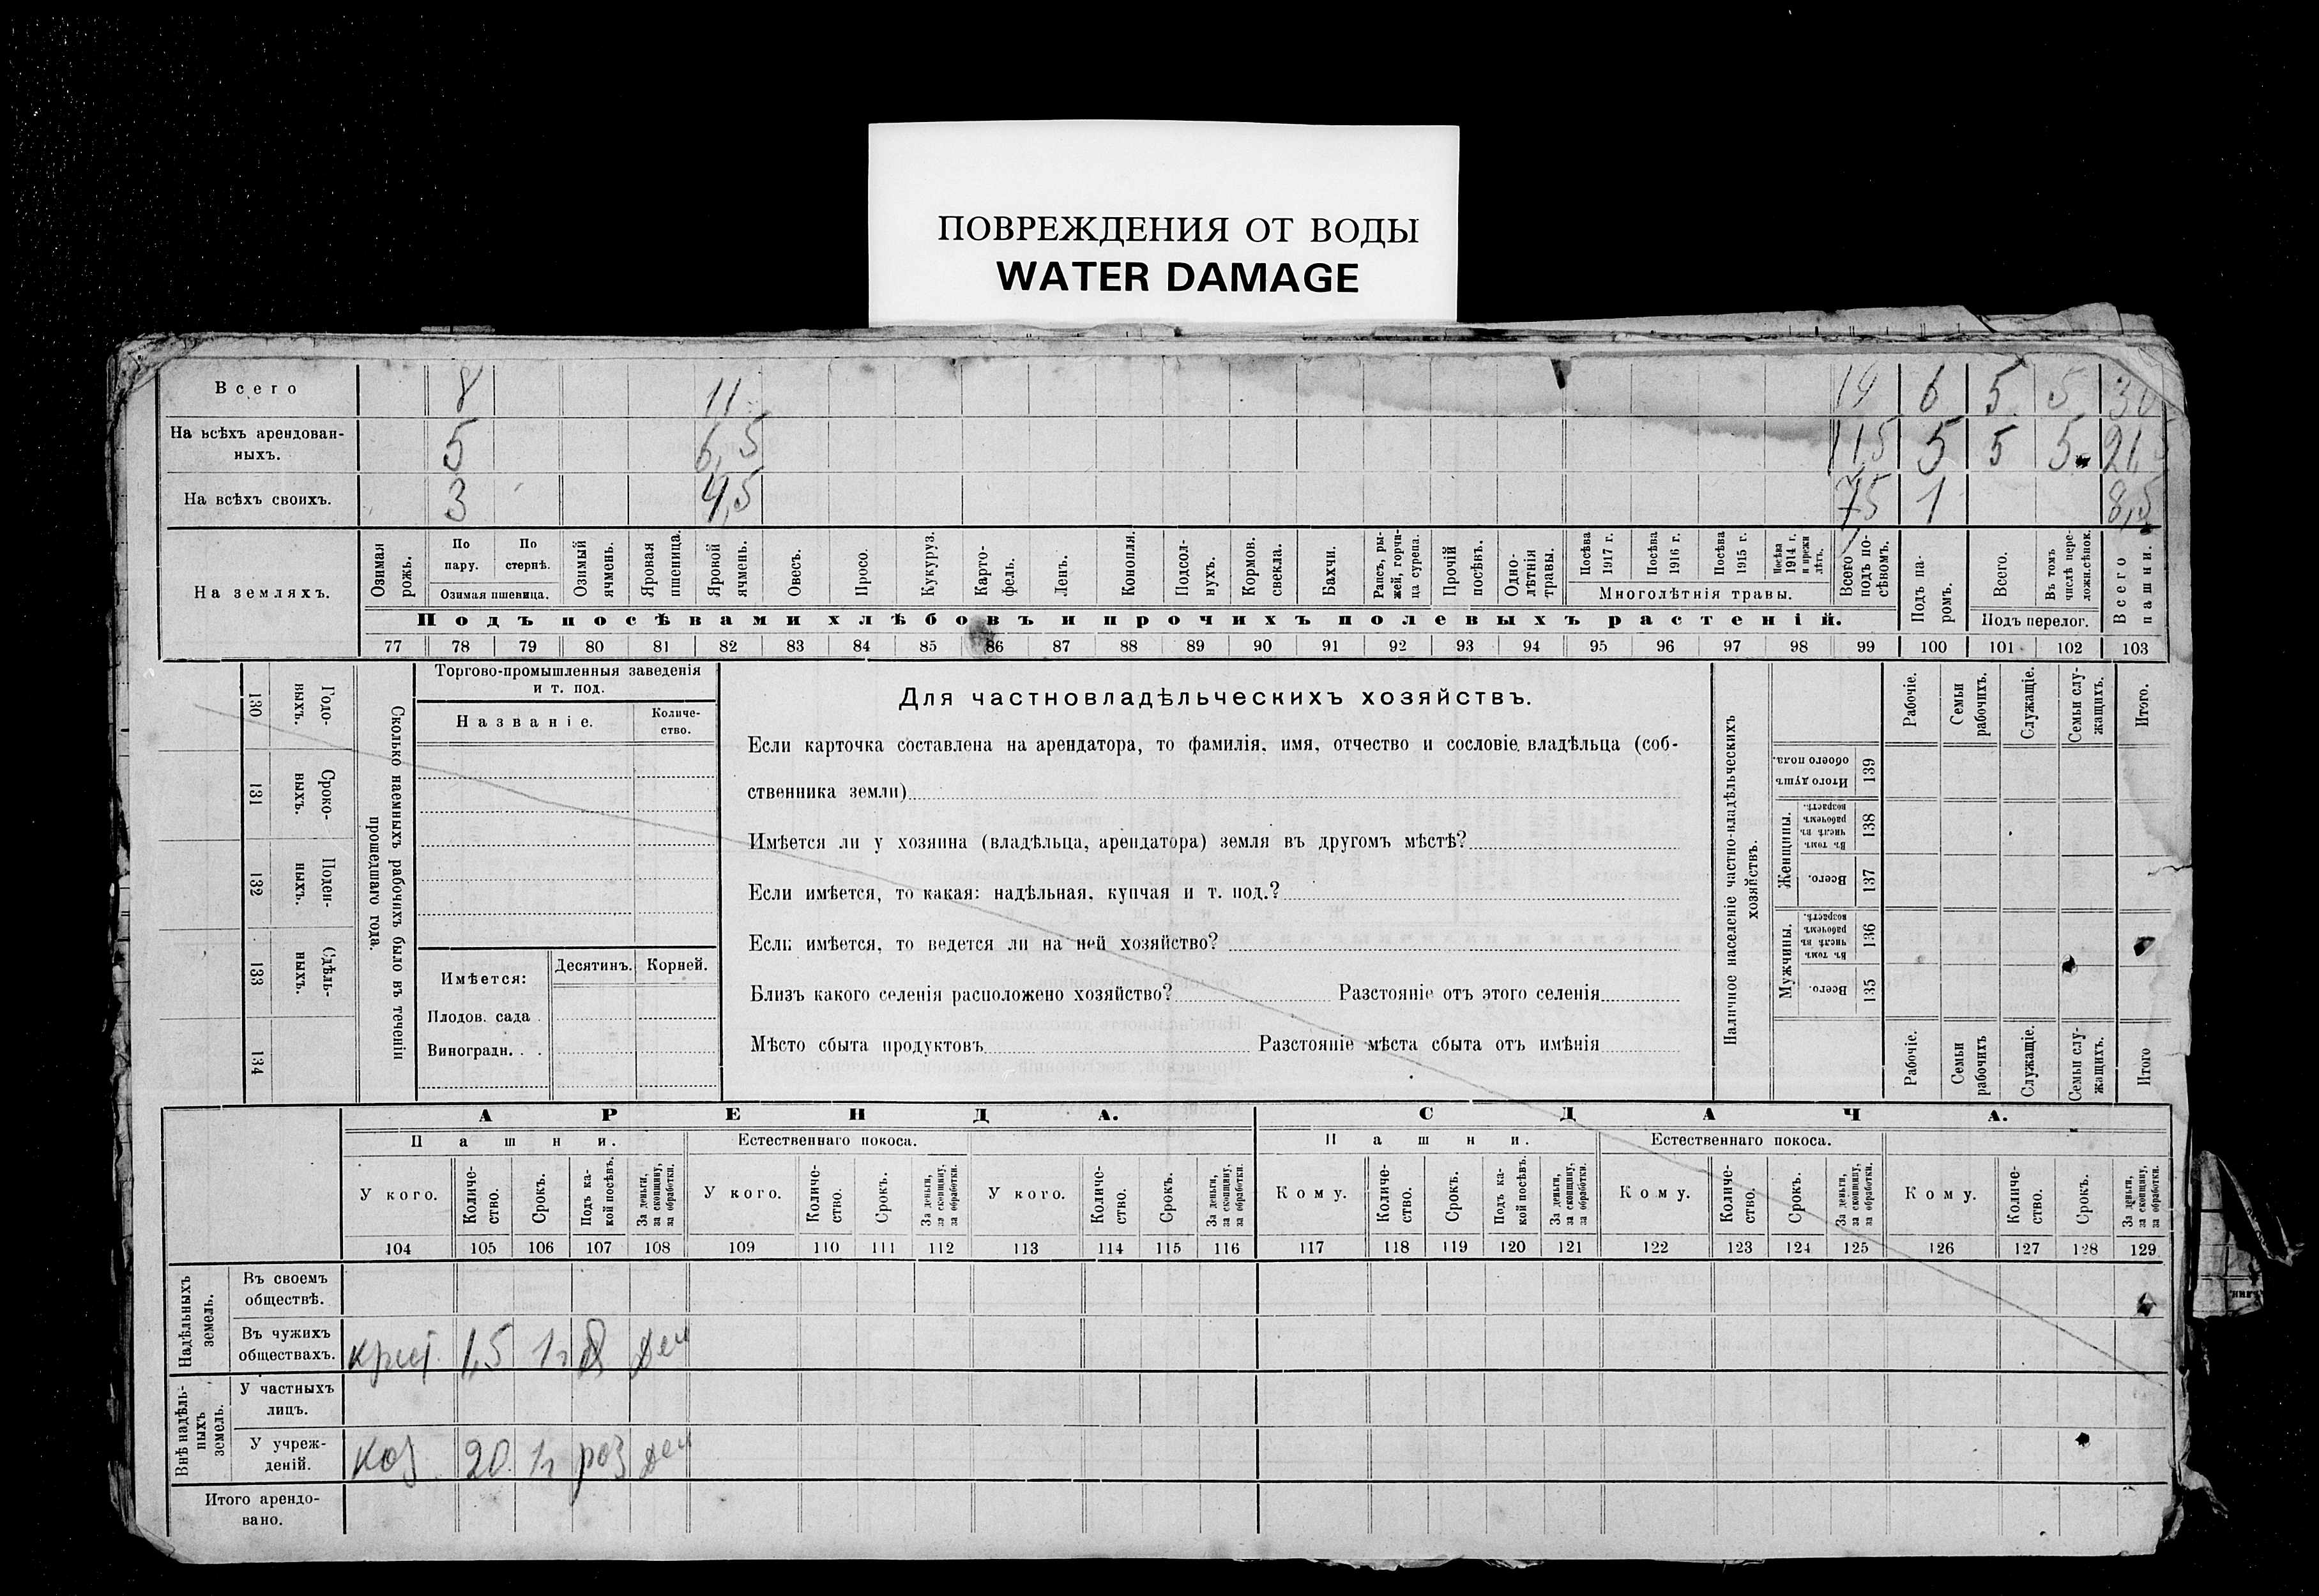 ПОВРЕЖДЕНИЯ ОТ ВОДЫ
WATER DAMAGE
Всего 8 11 19 6 5 5 30
На всѣхъ арендованныхъ. 5 6,5 11,5 5 5 5 21,5
На всѣхъ своихъ. 3 4,5 7,5 1 8,5
На земляхъ.
Озимая рожь.
По пару.
По стернѣ.
Озимая пшеница.
Озимый ячмень.
Яровая пшеница.
Яровой ячмень.
Овесъ.
Просо.
Кукуруз.
Картофель.
Ленъ.
Конопля.
Подсолнухъ.
Кормов. свекла.
Бахчи.
Рапсъ, рыжей, горчица сурепа.
Прочій посѣвъ.
Однолѣтнія травы.
Посѣва 1917 г.
Посѣва 1916 г.
Посѣва 1915 г.
Посѣва 1914 г. и прежн лѣтъ.
Многолѣтнія травы.
Всего подъ посѣвомъ.
Подъ паромъ.
Всего.
Въ томъ числѣ переложн.сѣнок.
Подъ перелог.
Всего пашни.
Подъ посѣвами хлѣбовъ и прочихъ полевыхъ растеній.
77 78 79 80 81 82 83 84 85 86 87 88 89 90 91 92 93 94 95 96 97 98 99 100 101 102 103
130 Годовыхъ.
131 Сроковыхъ.
132 Поденныхъ.
133 Сдѣльныхъ.
134
Сколько наемныхъ рабочихъ было въ теченіи прошедшаго года.
Торгово-промышленныя заведенія
и т. под.
Названіе.
Количество.
Имѣется: Десятинъ. Корней.
Плодов. сада
Виноградн. . .
Для частновладѣльческихъ хозяйствъ.
Если карточка составлена на арендатора, то фамилія, имя, отчество и сословіе владѣльца (соб-
ственника земли)
Имѣется ли у хозяина (владѣльца, арендатора) земля въ другомъ мѣстѣ?
Если имѣется, то какая: надѣльная, купчая и т. под.?
Если имѣется, то ведется ли на ней хозяйство?
Близъ какого селенія расположено хозяйство? Разстояніе отъ этого селенія
Мѣсто сбыта продуктовъ Разстояніе мѣста сбыта отъ имѣнія
Наличное населеніе частно-владѣльческихъ хозяйствъ.
Рабочіе.
Семьи рабочихъ.
Служащіе.
Семьи служащихъ.
Итого.
Итого душъ обоего пола. 139
Женщины.
Въ томъ числѣ въ рабочемъ возрастѣ. 138
Всего. 137
Мужчины.
Въ томъ числѣ въ рабочемъ возрастѣ. 136
Всего. 135
Рабочіе.
Семьи рабочихъ
Служащіе.
Семьи служащихъ.
Итого
АРЕНДА. СДАЧА.
Пашни. Естественнаго покоса. Пашни. Естественнаго покоса.
У кого.
Количество.
Срокъ.
Подъ какой посѣвъ.
За деньги, за скопщину, за обработки.
У кого.
Количество.
Срокъ.
За деньги, за скопщину, за обработки.
У кого.
Количество.
Срокъ.
За деньги, за скопщину, за обработки.
Кому.
Количество.
Срокъ.
Подъ какой посѣвъ.
За деньги, за скопщину, за обработки.
Кому.
Количество.
Срокъ.
За деньги, за скопщину, за обработки.
Кому.
Количество.
Срокъ.
За деньги, за скопщину, за обработки.
104 105 106 107 108 109 110 111 112 113 114 115 116 117 118 119 120 121 122 123 124 125 126 127 128 129
Надѣльныхъ земель.
Въ своемъ обществѣ.
Въ чужихъ обществахъ. 1,5 1г ден
Внѣ надѣльныхъ земель.
У частныхъ лицъ.
У учрежденій. каз 20 1г роз ден
Итого арендовано.